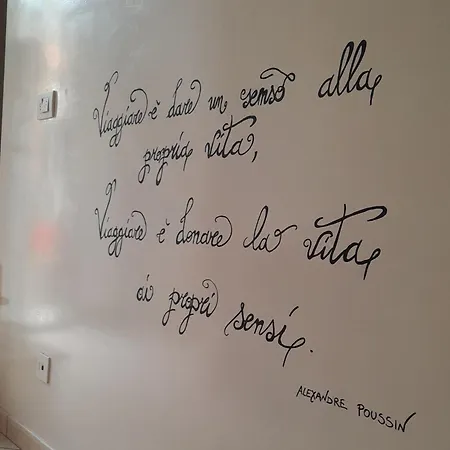 Viaggiare è dare un senso alla
propria vita,
Viaggiare è donare la vita
ai propri sensi.
ALEXANDRE POUSSIN